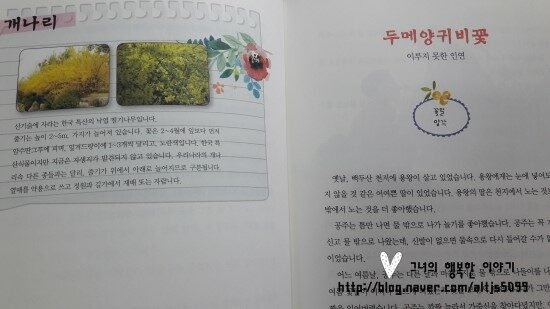 개나리
산기슭에 자라는 한국 특산의 낙엽 떨기나무입니다.
줄기는 높이 2~5m, 가지가 늘어져 있습니다. 꽃은 2~4월에 잎보다 먼저
잎겨드랑이에 1~3개씩 달리고, 노란색입니다. 한국 특
산식물이지만 지금은 자생지가 발견되지 않고 있습니다. 우리나라의 개나
리속 다른 종들과는 달리, 줄기가 위에서 아래로 늘어지므로 구분됩니다.
열매를 약용으로 쓰고 정원과 길가에서 재배 또는 자랍니다.
두메양귀비꽃
이루지 못한 인연
꽃말
옛날, 백두산 천지에 용왕이 살고 있었습니다. 용왕에게는 눈에 넣어도
지 않을 것 같은 어여쁜 딸이 있었습니다. 용왕의 딸은 천지에서 노는 것
밭에서 노는 것을 더 좋아했습니다.
공주는 틈만 나면 물 밖으로 나가 놀기를 좋아했습니다. 공주는 꼭
신고 물 밖으로 나왔는데, 신발이 없으면 물속으로 다시 들어갈 수가
이었습니다.
어느 여름날, 공주는 다른 날과
그녀의 행복한 이야기
http://blog.naver.com/altjs5099